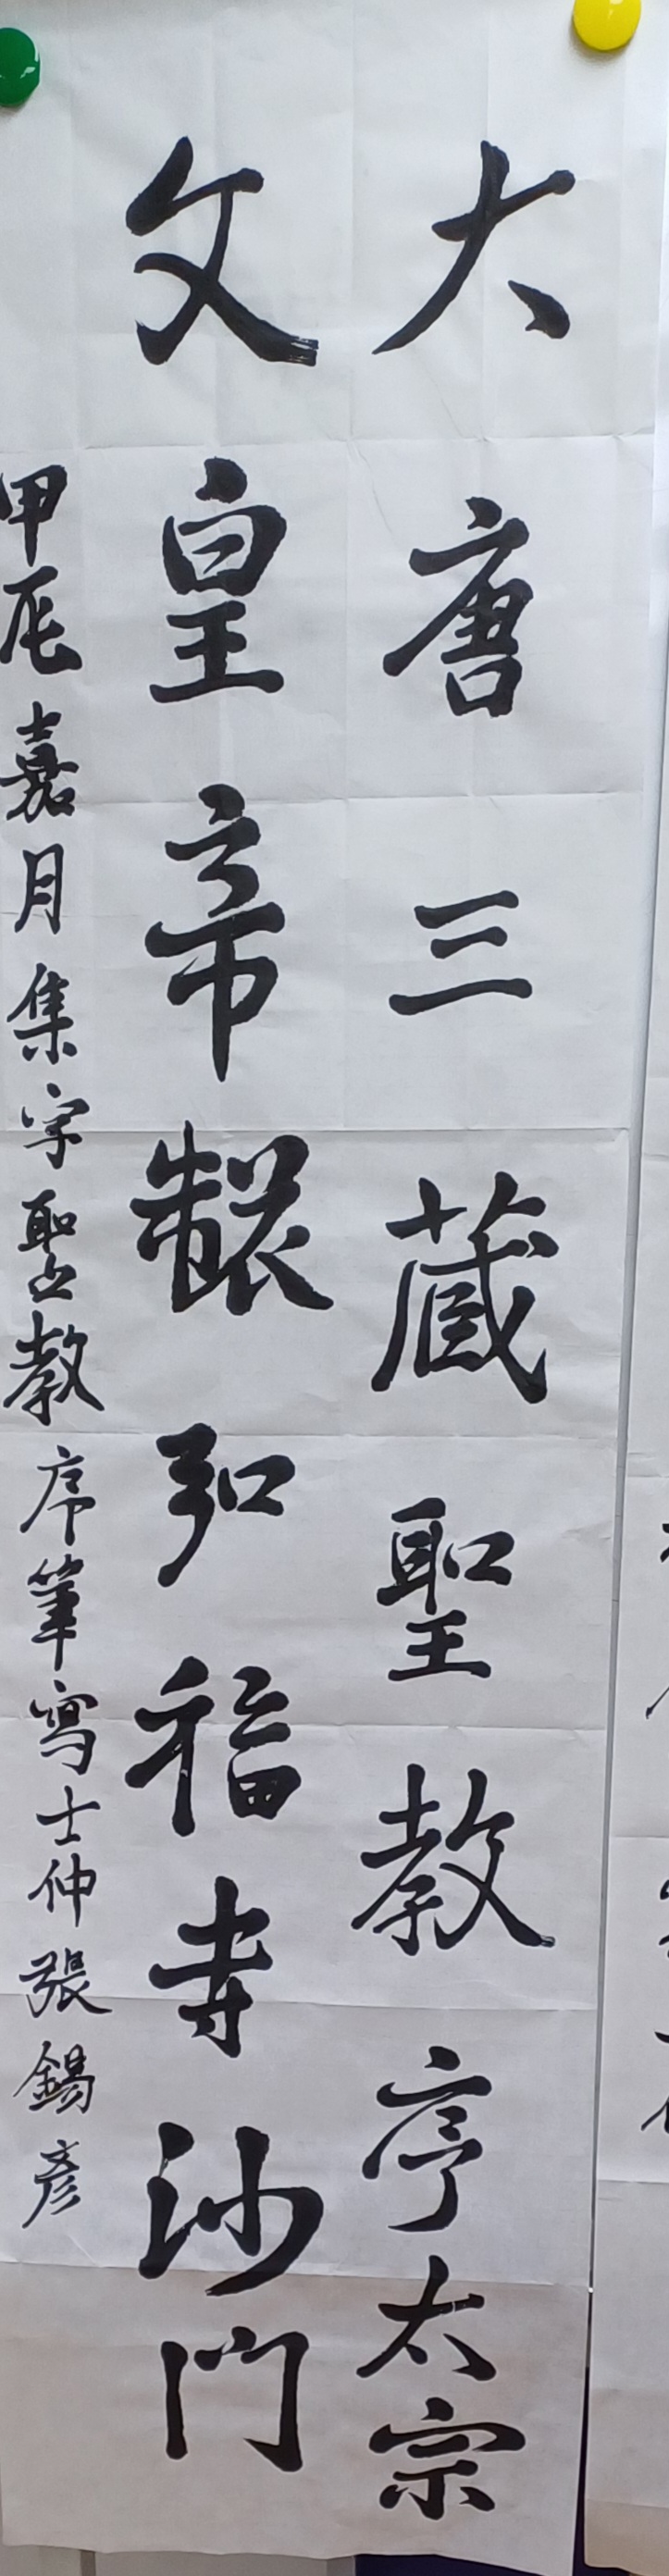 大唐三藏聖教序太宗
文皇帝製弘福寺沙門
甲辰嘉月集字聖教序筆寫士仲張錫彥